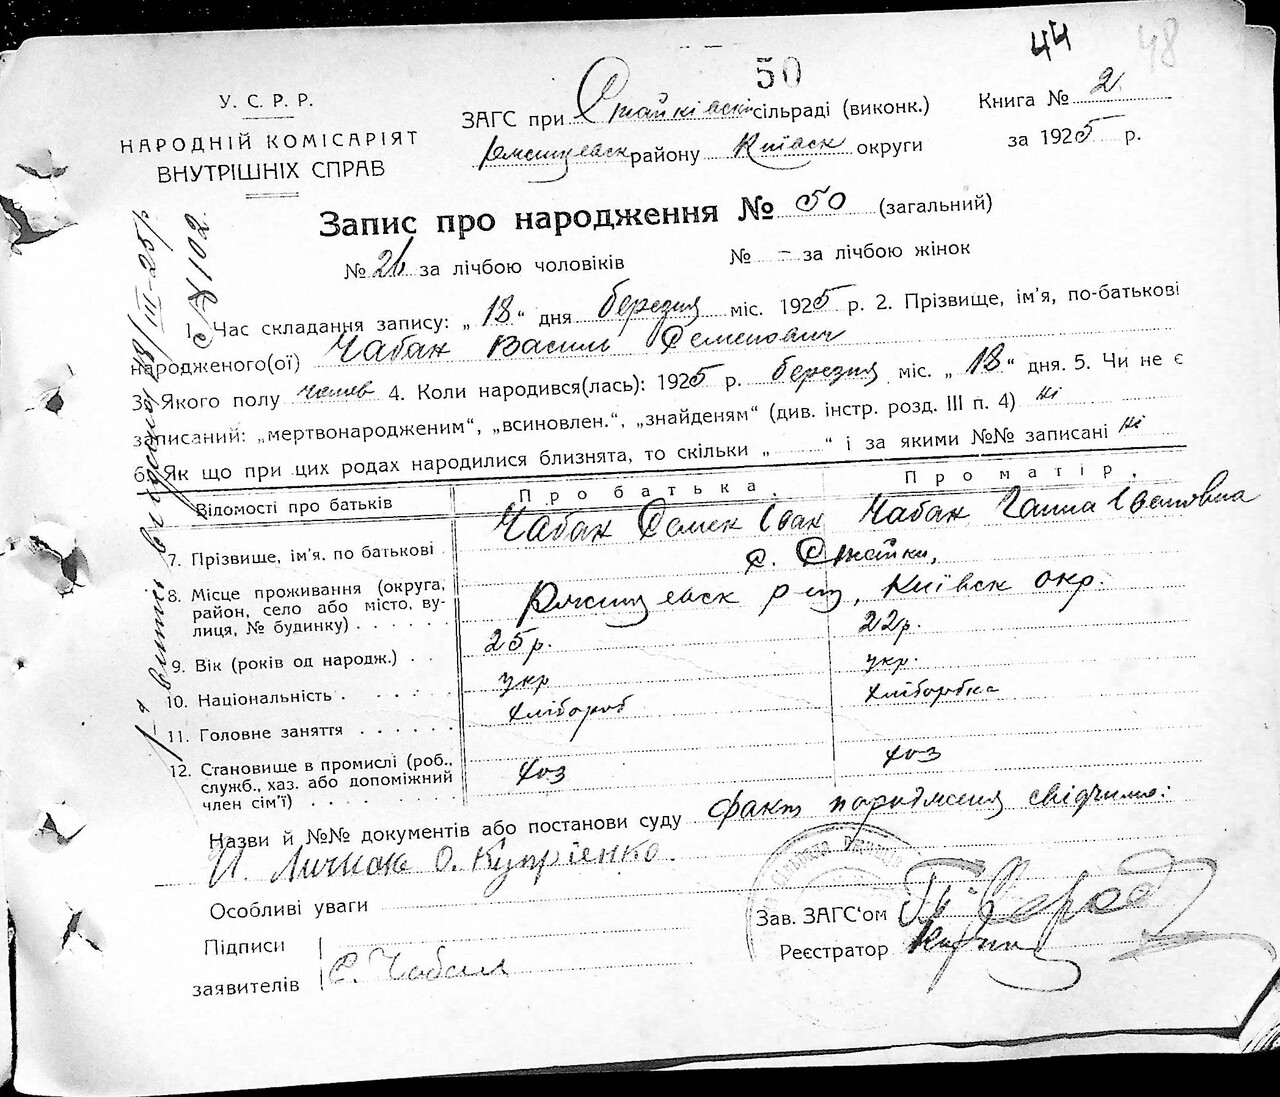 44 48
50
У. С. Р. Р.
НАРОДНІЙ КОМІСАРІЯТ
ВНУТРІШНІХ СПРАВ
ЗАГС при Стайківськ сільраді (виконк.)
Ржищевськ району Київськ округи
Книга № 2
за 1925 р.
Запис про народження № 50 (загальний)
№ 26 за лічбою чоловіків № - за лічбою жінок
1. Час складання запису: „ 18 “ дня березня міс. 1925 р. 2. Прізвище, ім’я, по-батькові
народженого(ої) Чабан Василь Семенович
3. Якого полу чолов 4. Коли народився(лась): 1925 р. березня міс. „ 18 “ дня. 5. Чи не є
записаний: „мертвонародженим“, „всиновлен.“, „знайденям“ (див. інстр. розд. III п. 4) ні
6. Як що при цих родах народилися близнята, то скільки „ “ і за якими №№ записані ні
Відомості про батьків Про батька. Про матір.
7. Прізвище, ім’я, по батькові Чабан Семен Іван Чабан Ганна Івановна
8. Місце проживання (округа, район, село або місто, вулиця, № будинку) с. Стайки,
Ржищевськ р-ну, Київськ окр.
9. Вік (років од народж.) 25 р. 22 р.
10. Національність укр укр.
11. Головне заняття хлібороб хліборобка
12. Становище в промислі (роб., служб., хаз. або допоміжний член сім’ї) хоз хоз
Назви й №№ документів або постанови суду факт народження свідчимо:
О. Купрієнко.
Особливі уваги
Підписи
заявителів С. Чабан
Зав. ЗАГС‘ом
Реєстратор